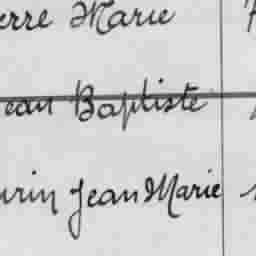 erre Marie
ean Baptiste
urin Jean Marie